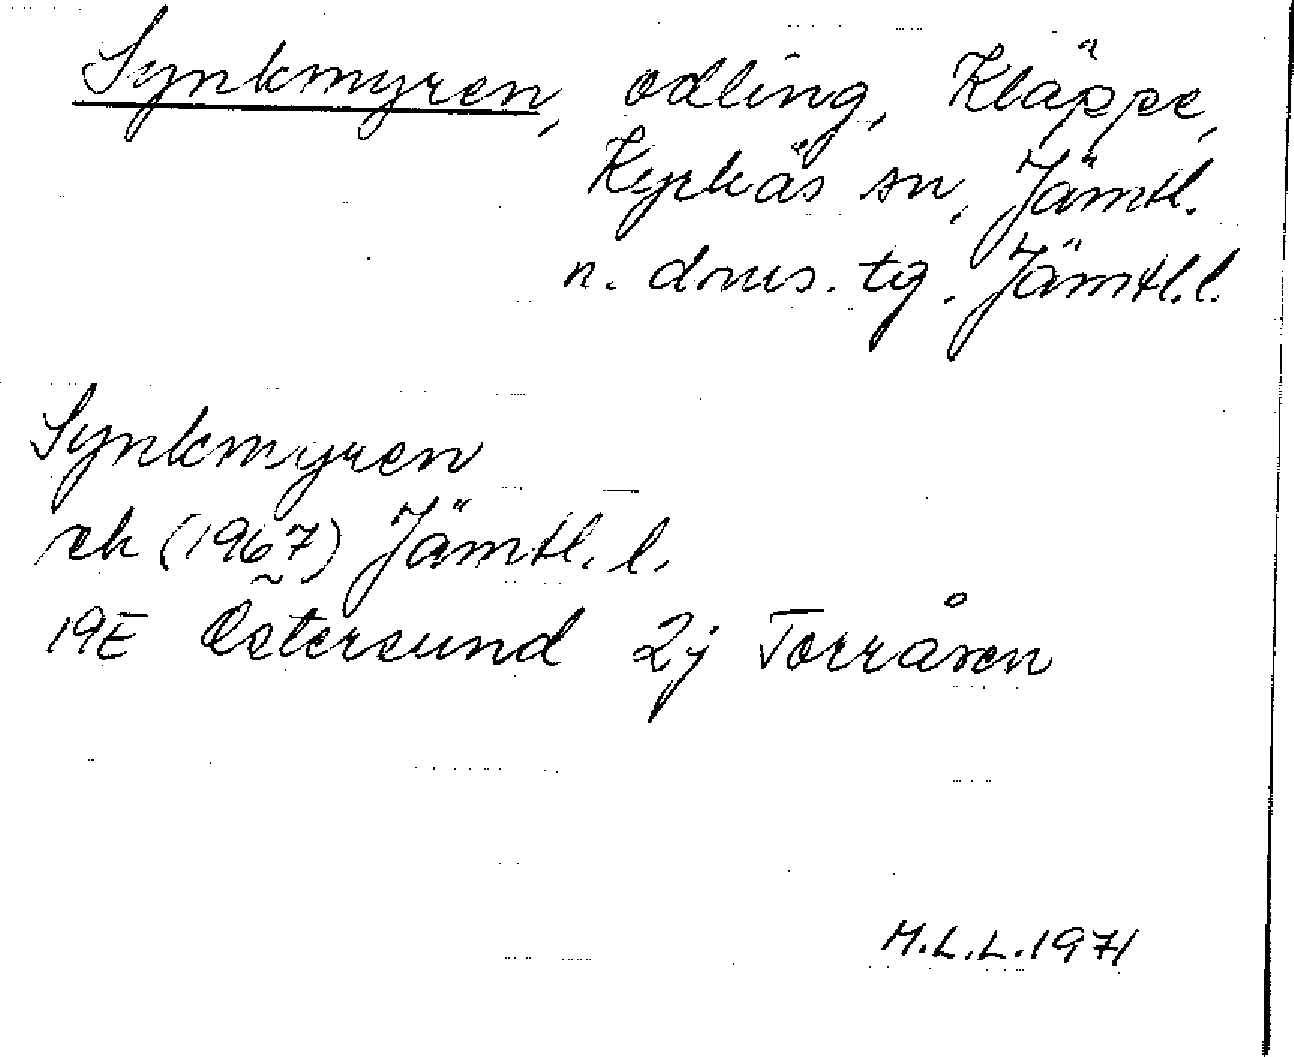 Synkmyren, odling, Kläppe,
Kyrkås sn, Jämtl.
n. doms. tg. Jämtl.l.
Synkmyren
ek (1967) Jämtl. l.
19E Östersund 2j Torråsen
M.L.L. 1971